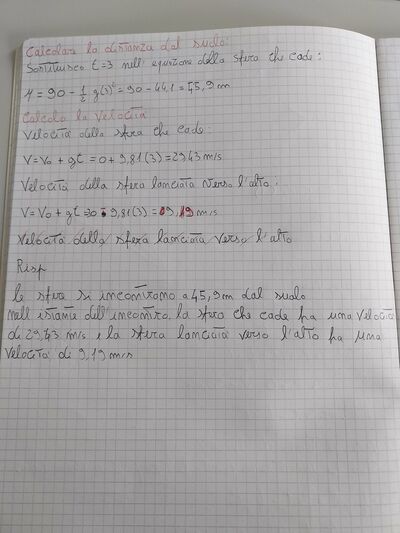 Calcolare la distanza dal suolo:
Sostituisco t=3 nell' equazione della sfera che cade:
y = 90 - 1/2 g(3)² = 90 - 44,1 = 45,9 m
Calcolo la velocità
Velocità della sfera che cade:
V = V₀ + gt = 0 + 9,81(3) = 29,43 m/s
Velocità della sfera lanciata verso l'alto:
V = V₀ + gt = 30 - 9,81(3) = 09,19 m/s
Velocità della sfera lanciata verso l'alto
Risp
le sfere si incontrano a 45,9m dal suolo
nell' istante dell'incontro, la sfera che cade ha una velocità
di 29,43 m/s e la sfera lanciata verso l'alto ha una
velocità di 9,19 m/s